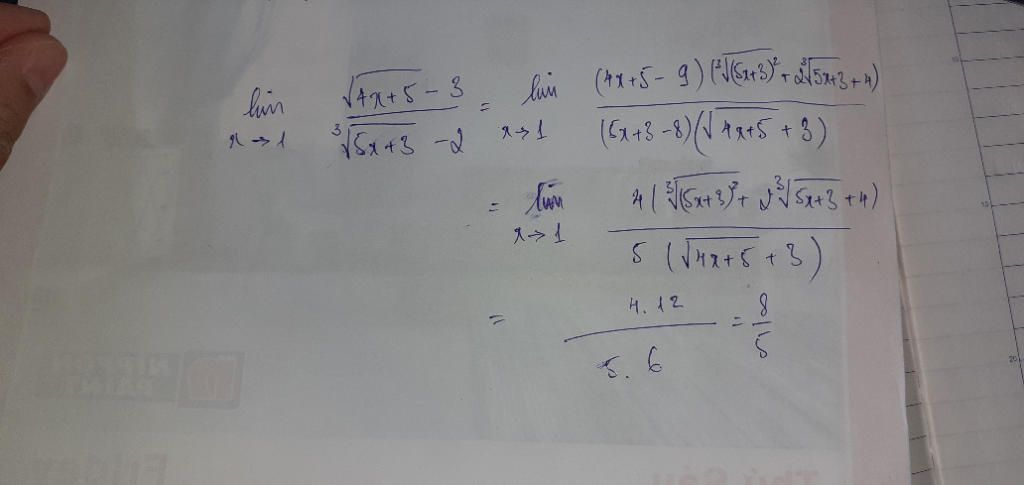 lim x→1 (√(4x+5) - 3)/(∛(5x+3) - 2) = lim x→1 ((4x+5-9)(∛(5x+3)² + 2∛(5x+3) + 4))/((5x+3-8)(√(4x+5) + 3))
= lim x→1 (4(∛(5x+3)² + 2∛(5x+3) + 4))/(5(√(4x+5) + 3))
= (4.12)/(5.6) = 8/5